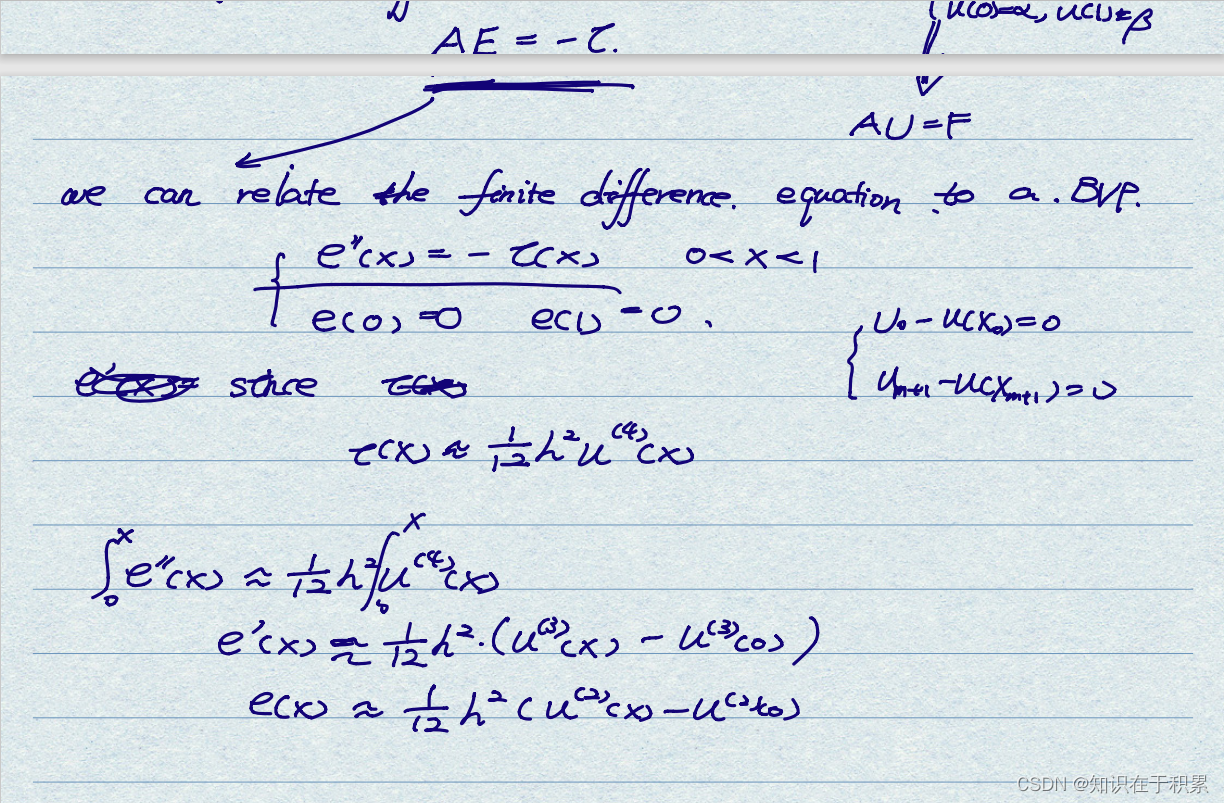 AE = -τ.
u(0)=α, u(1)=β
AU=F
we can relate the finite difference. equation to a. BVP.
e''(x) = - τ(x) 0<x<1
e(0)=0 e(1)=0.
U₀ - u(x₀)=0
since
U_{m+1} - u(x_{m+1})=0
τ(x) ≈ 1/12 h² u^{(4)}(x)
∫₀ˣ e''(x) ≈ 1/12 h² ∫₀ˣ u^{(4)}(x)
e'(x) ≈ 1/12 h²·(u^{(3)}(x) - u^{(3)}(0))
e(x) ≈ 1/12 h² (u^{(2)}(x) - u^{(2)}(0)
CSDN @知识在于积累